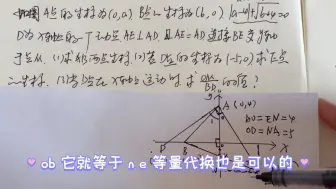 A点的坐标为(0,a) B点的坐标为(b,0) |a-4|+|b+4|=0
D为x轴上的一个动点 AE⊥AD 且AE=AD 连接BE交y轴
于点M (1)求AB两点坐标 (2)若D点的坐标为(-5,0)求E点
的坐标, (3)当D在x轴上运动时 求 OM/BD 的值?
y
A (0,4)
AO=EN=4
OD=NA=5
x
ob 它就等于 n e 等量代换也是可以的